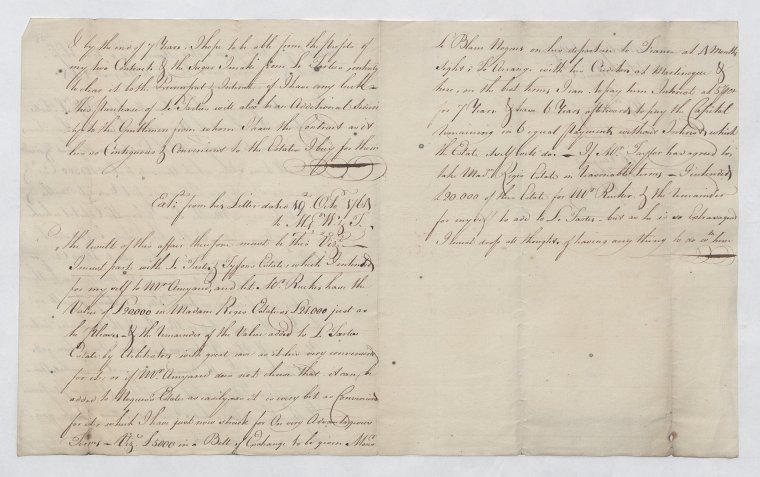 & by the end of 7 Years, I hope to be able from the profits of
my two Contracts & the Sugar Made from Le Tartes entirely
to clear it both Principal & Interest if I have any luck –
this purchase of Le Tartes will also be an Additional Security
to the Gentlemen from whom I have the Contract as it
lies so Contiguous & Convenient to the Estates I buy for them
Ext. from his Letter dated 19 Oct. 176
to M W. & T.
The result of this affair therefore must be this Viz. –
I must part with Le Tartes & Estate, which I intended
for myself to Mr. Amyand, and let Mr. Rucker have the
Value of £20,000 in Madam Regis Estate or £21,000 just as
he pleases – & the remainder of the Value added to Le Tartes
Estate by Arbitrators with great ease as it lies very convenient
for it, or if Mr. Amyand does not chuse that it can be
added to Negrins Estate as easily, as it is every bit as Convenient
for it, which I have just now struck for On very Advantageous
Terms – Viz. £5000 in a Bill of Exchange to be given
Le Blanc Negrin on his departure to France at Months
Sight; & to Arrange with his Creditors at Martinique &
here, on the best terms I can to pay them Interest at 5
for 7 Years & have 6 Years afterwards to pay the Capital
remaining in 6 equal Payments without Interest, which
the Estate itself will do. – If Mr. had agreed to
take Mad. Regis Estate on reasonable terms – I intended
£20,000 of the Estate for Mr. Rucker, & the remainder
for myself to add to Le Tartes – but as he is so extravagant
I must drop all thoughts of having any thing to do wth. him